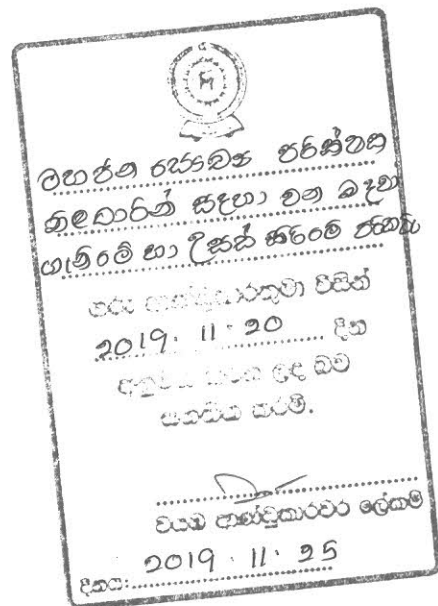 මහජන සෞඛ්‍ය පරීක්ෂක
නිලධාරීන් සඳහා වන බඳවා
ගැනීමේ හා උසස් කිරීමේ
ගරු ආණ්ඩුකාරතුමා විසින්
2019. 11. 20 දින
අනුමත කරන ලද බව
සහතික කරමි.
වයඹ ආණ්ඩුකාරවර ලේකම්
දිනය: 2019. 11. 25